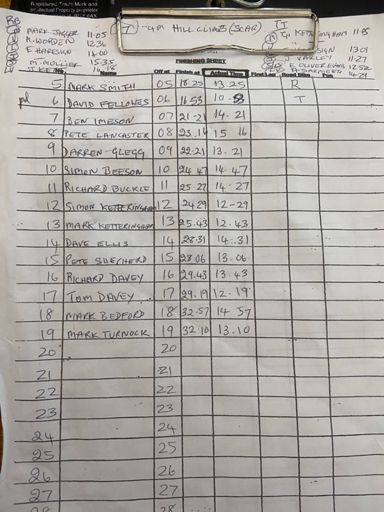 7 - 4m HILL CLIMB (SCAR) TT
MARK JAGGER 11-05
R. WORDEN 12.36
E. HARESIGN 14.00
M. HOLLIER 15.35
13.01
VARLEY 11-27
E OLIVER EVANS 12.52
14-29
FINISHING SHEET
Name Off at Finish at Actual Time First Lap Road Bike
5 MARK SMITH 05 18.25 13.25 R
6 DAVID FELLOWES 06 16 53 T
7 BEN IMESON 07 21-21 14.21
8 PETE LANCASTER 08 23.16 15 16
9 DARREN GLEGG 09 22.21 13.21
10 SIMON BEESON 10 24 47 14.47
11 RICHARD BUCKLE 11 25-27 14-27
12 SIMON KETTERINGHAM 12 24 29 12-29
13 MARK KETTERINGHAM 13 25.43 12.43
14 DAVE ELLIS 14 28.31 14.31
15 PETE SHEPHERD 15 28 06 13.06
16 RICHARD DAVEY 16 29.43 13 43
17 TOM DAVEY 17 29.19 12-19
18 MARK BEDFORD 18 32.57 14 57
19 MARK TURNOCK 19 32.10 13.10
20 20
21 21
22 22
23 23
24 24
25 25
26 26
27 27
28 28